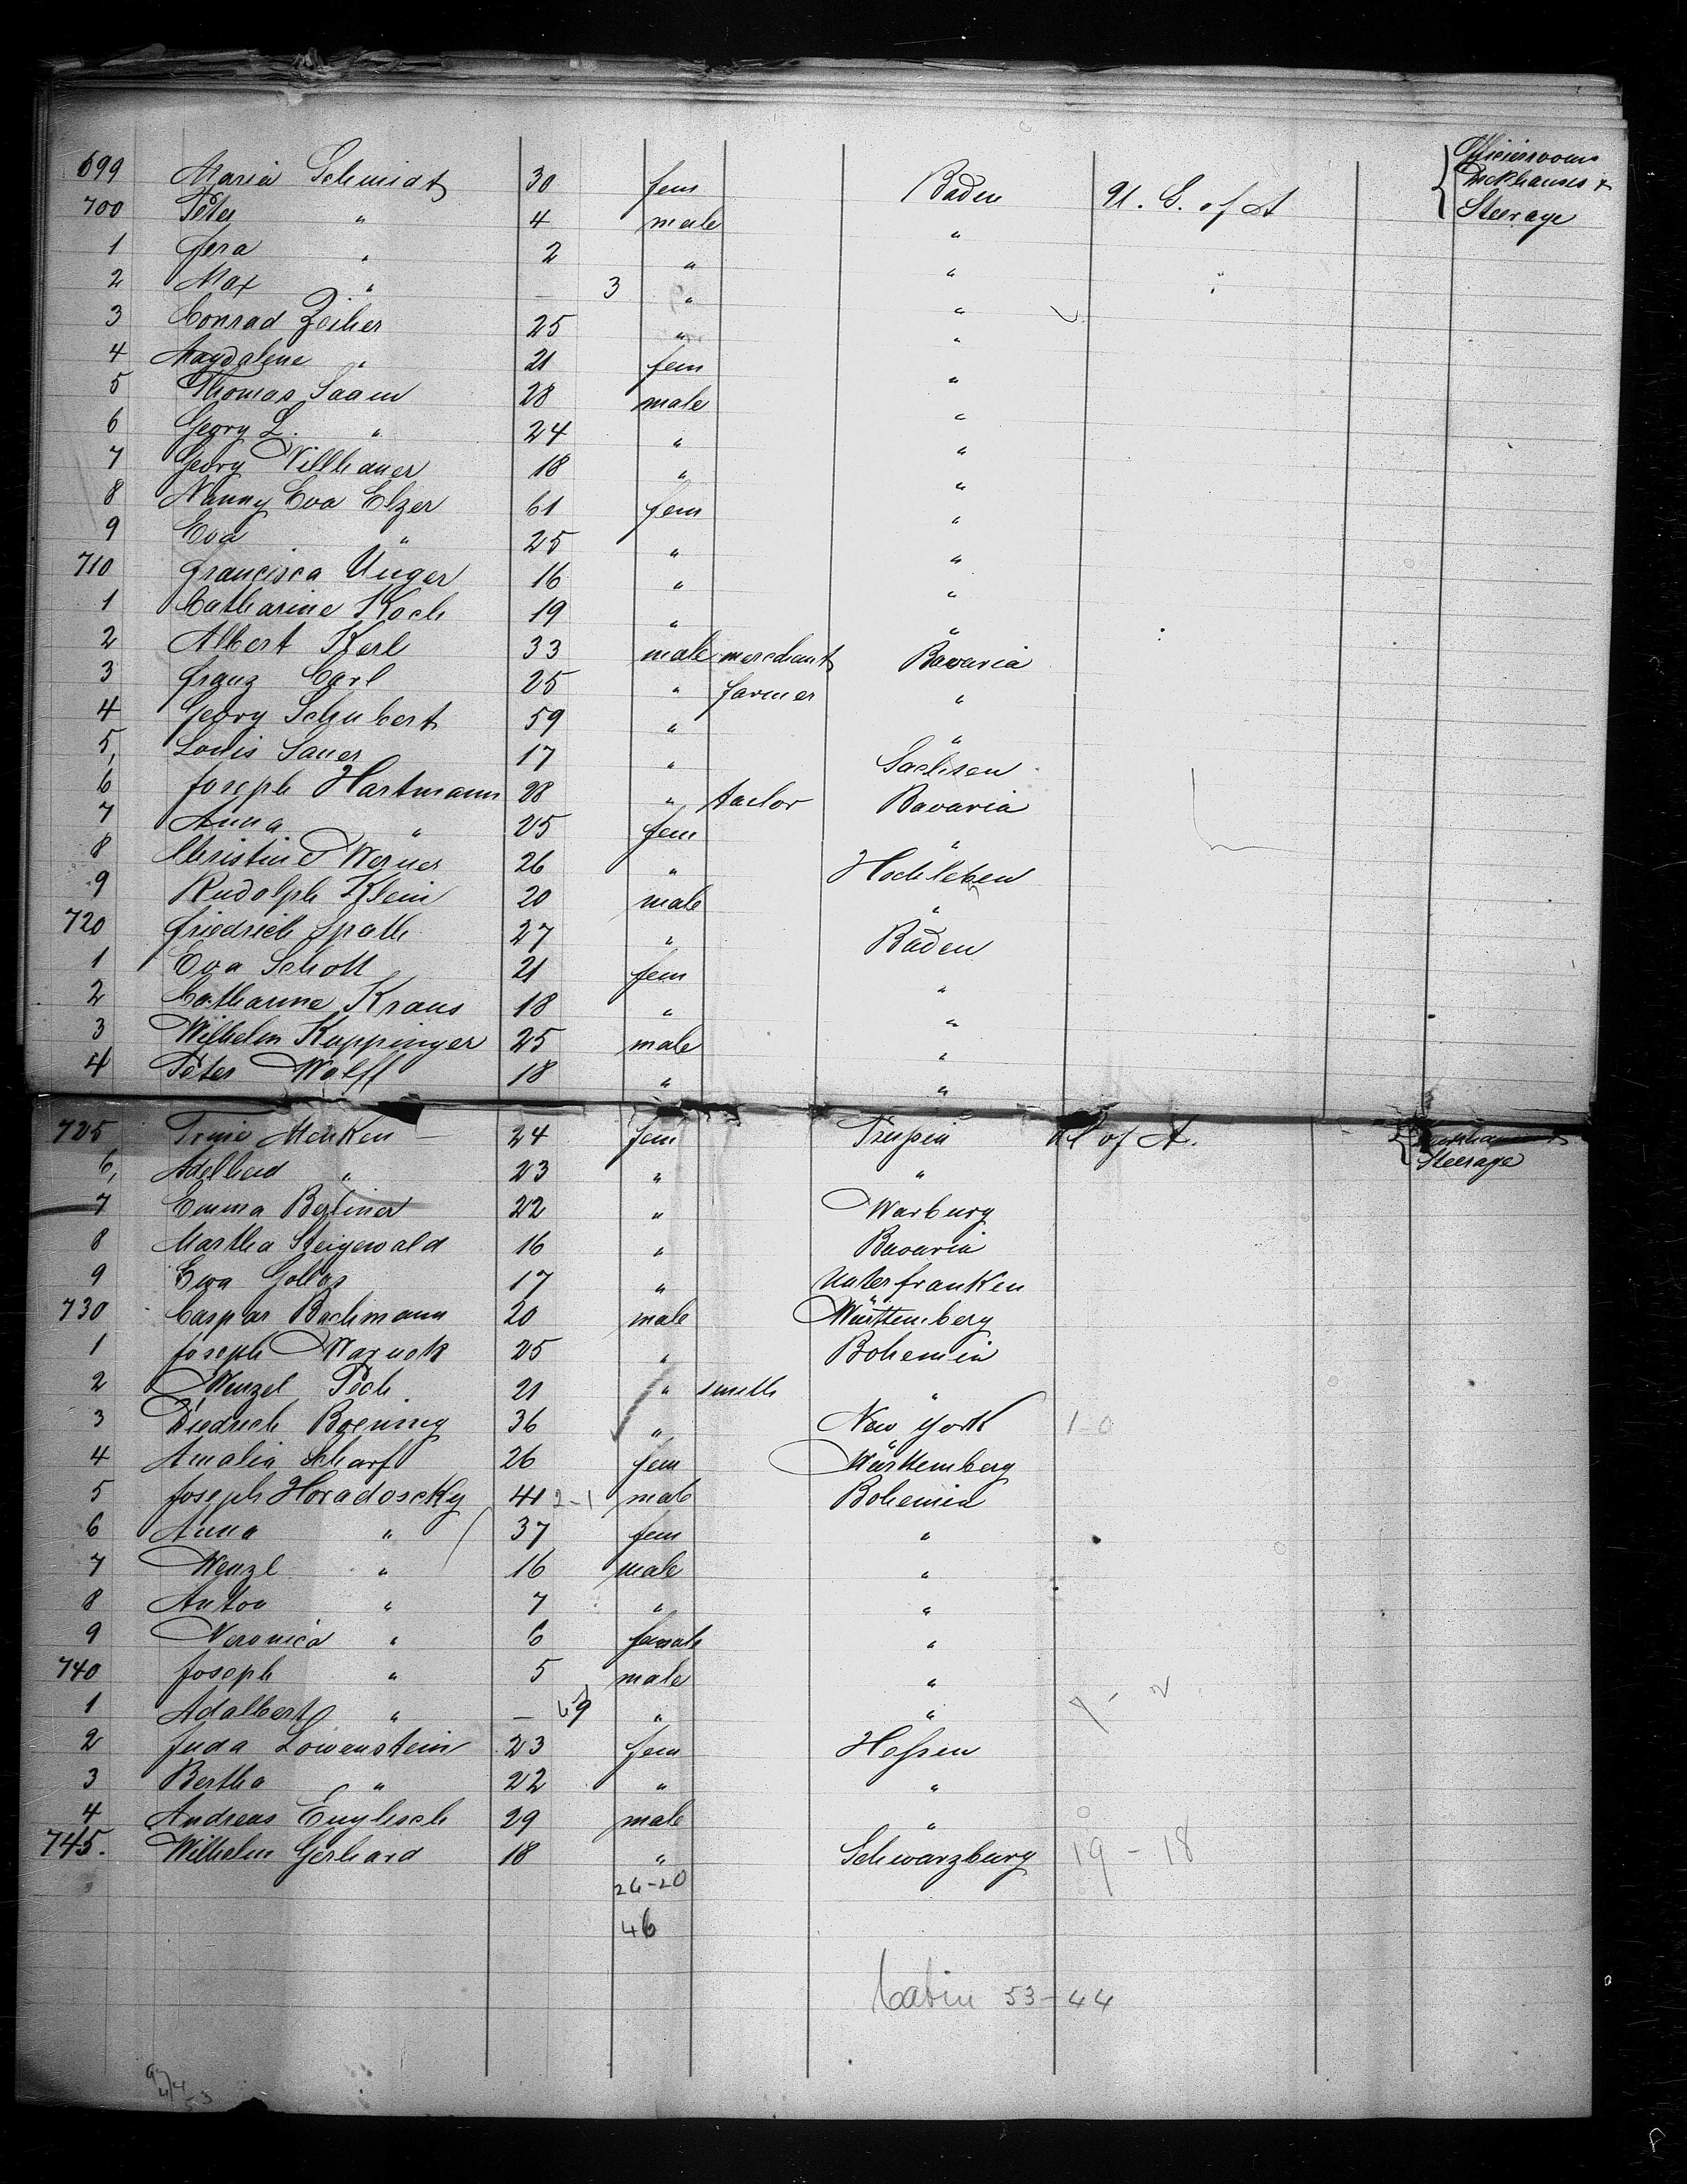 699 Maria Schmidt 30 fem Baden U. S. of A Officiersrooms
700 Peter " 4 male " Deckhauses &
1 Jera " 2 " " Steerage
2 Max " — 3 " "
3 Conrad Zeiher 25 " "
4 Magdalene " 21 fem "
5 Thomas Saam 28 male "
6 Georg L. " 24 " "
7 Georg Villhauer 18 " "
8 Nanny Eva Elzer 61 fem "
9 Eva " 25 " "
710 Francisca Unger 16 " "
1 Catharine Koch 19 " "
2 Albert Kerl 33 male merchant Bavaria
3 Franz Carl 25 " farmer "
4 Georg Schubert 59 " "
5, Louis Sauer 17 " Sachsen
6 Joseph Hartmann 28 " taelor Bavaria
7 Anna " 25 fem "
8 Christine Werner 26 " Hochleben
9 Rudolph Klein 20 male "
720 Friedrich Spath 27 " Baden
1 Eva Schott 21 fem "
2 Catharine Kraus 18 " "
3 Wilhelm Kuppinger 25 male "
4 Peter Wolff 18 " "
725 Trine Menken 24 fem of A.
6, Adelheid " 23 " " Steerage
7 Emma Berliner 22 " Warburg
8 Martha Steigewald 16 " Bavaria
9 Eva 17 " Unterfranken
730 Caspar Bachmann 20 male Württemberg
1 Joseph 25 " Bohemia
2 Wenzel Pech 21 " smith "
3 Diedrich Boening 36 " New York 1-0
4 Amalia Scharf 26 fem Württemberg
5 Joseph Horadoscky 41 2-1 male Bohemia
6 Anna " 37 fem "
7 Wenzl " 16 male "
8 Anton " 7 " "
9 Veronica " 6 female "
740 Joseph " 5 male "
1 Adalbert " — 9 " " 7-2
2 Juda Lowenstein 23 fem Hessen
3 Bertha " 22 " "
4 Andreas Englisch 29 male "
745. Wilhelm Gerhard 18 " Schwarzburg 19-18
26-20
46
Cabin 53-44